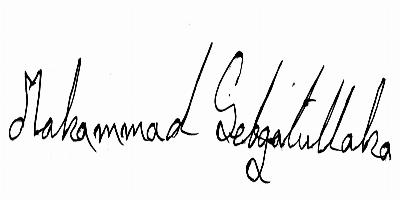 Mahammad Sebgatullaha